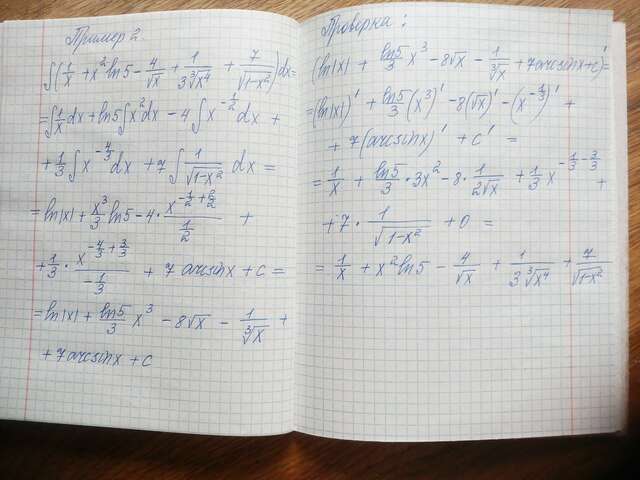 Пример 2.
∫(1/x + x² ln5 − 4/√x + 1/(3∛x⁴) + 7/√(1−x²))dx =
= ∫1/x dx + ln5∫x²dx − 4∫x^(−1/2) dx +
+ 1/3 ∫x^(−4/3) dx + 7∫1/√(1−x²) dx =
= ln|x| + x³/3 ln5 − 4 · x^(−1/2+2/2)/(1/2) +
+ 1/3 · x^(−4/3+3/3)/(−1/3) + 7 arcsinx + c =
= ln|x| + ln5/3 x³ − 8√x − 1/∛x +
+ 7arcsinx + c
Проверка:
(ln|x| + ln5/3 x³ − 8√x − 1/∛x + 7arcsinx + c)' =
= (ln|x|)' + ln5/3 (x³)' − 8(√x)' − (x^(−1/3))' +
+ 7(arcsinx)' + c' =
= 1/x + ln5/3 · 3x² − 8 · 1/(2√x) + 1/3 x^(−1/3−3/3) +
+ 7 · 1/√(1−x²) + 0 =
= 1/x + x² ln5 − 4/√x + 1/(3∛x⁴) + 7/√(1−x²)